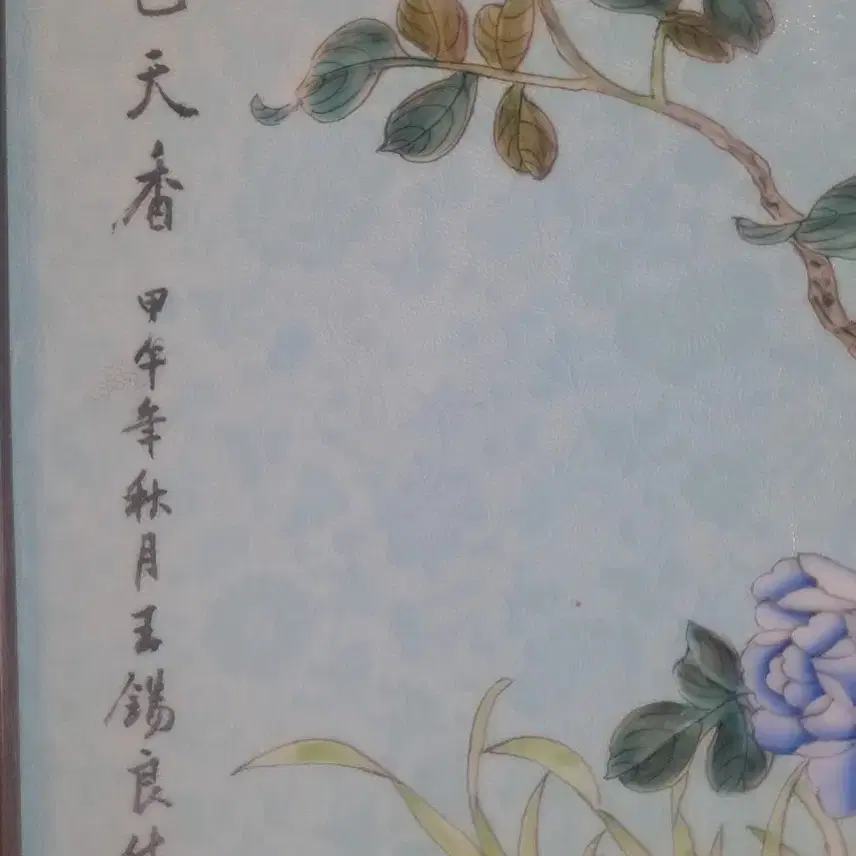 色天香
甲午年秋月王錫良作